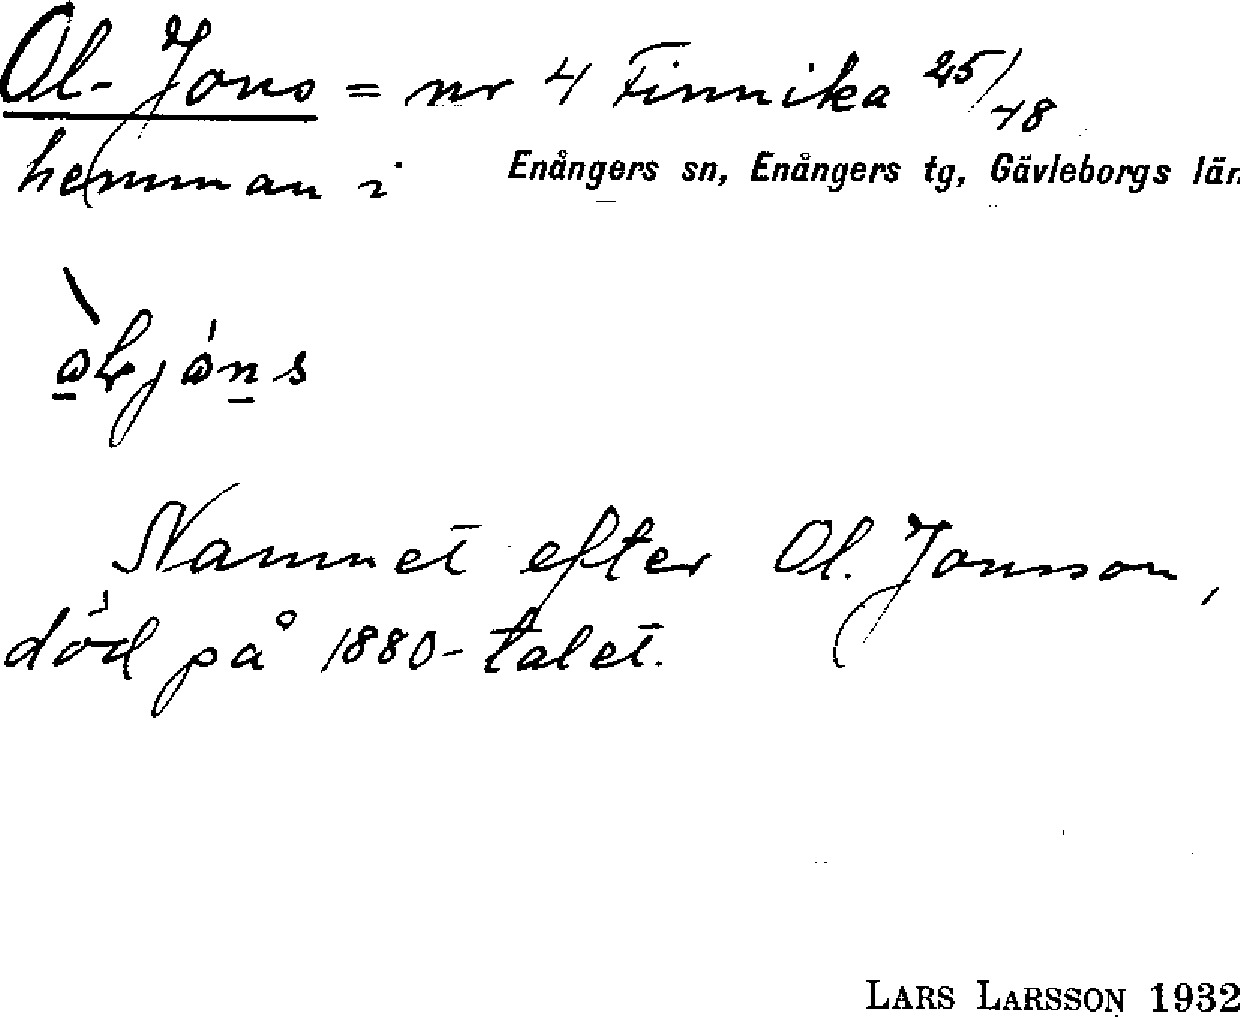 Ol-Jons = nr 4 Finnika 25/48
hemman i Enångers sn, Enångers tg, Gävleborgs län
Namnet efter Ol. Jonsson,
död på 1880-talet.
LARS LARSSON 1932